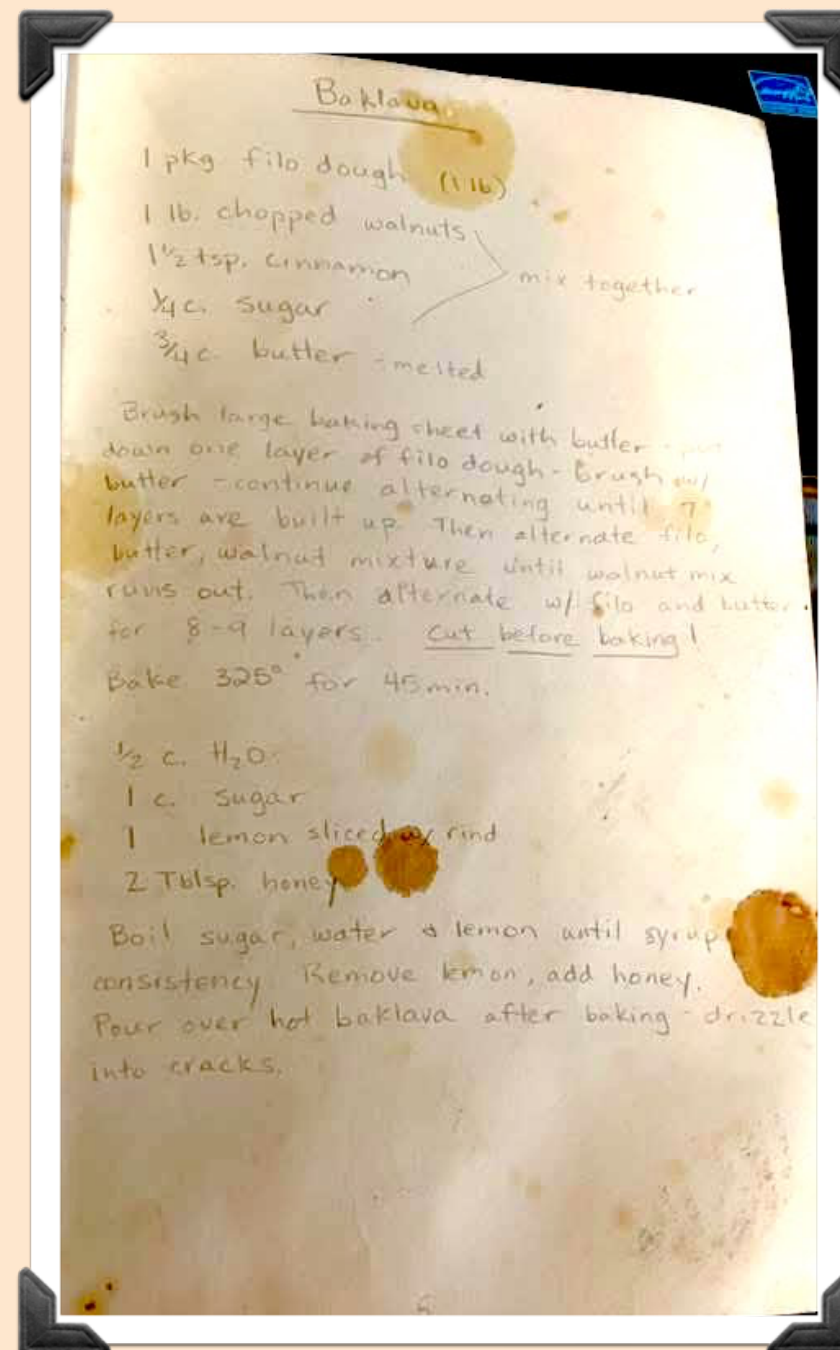 Baklava
1 pkg filo dough (1 lb)
1 lb. chopped walnuts
1 1/2 tsp. cinnamon
mix together
1/4 c. sugar
3/4 c. butter - melted
Brush large baking sheet with butter - put
down one layer of filo dough - Brush w/
butter - continue alternating until 7
layers are built up. Then alternate filo,
butter, walnut mixture until walnut mix
runs out. Then alternate w/ filo and butter
for 8-9 layers. Cut before baking!
Bake 325° for 45 min.
1/2 c. H₂O
1 c. sugar
1 lemon sliced w/ rind
2 Tblsp. honey
Boil sugar, water & lemon until syrup
consistency. Remove lemon, add honey.
Pour over hot baklava after baking - drizzle
into cracks.